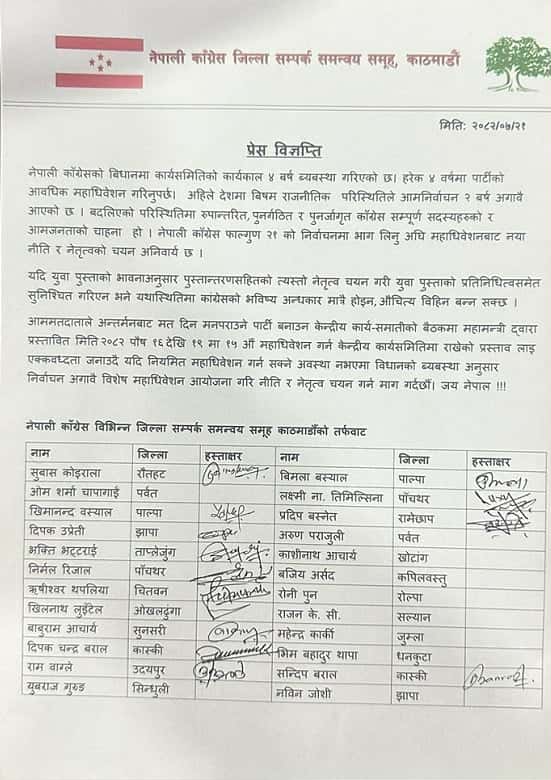 नेपाली काँग्रेस जिल्ला सम्पर्क समन्वय समूह, काठमाडौं
मिति: २०८२/०७/२१
प्रेस विज्ञप्ति
नेपाली काँग्रेसको बिधानमा कार्यसमितिको कार्यकाल ४ बर्ष ब्यबस्था गरिएको छ। हरेक ४ वर्षमा पार्टीको
आवधिक महाधिवेशन गरिनुपर्छ। अहिले देशमा बिषम राजनीतिक परिस्थितिले आमनिर्वाचन २ बर्ष अगावै
आएको छ । बदलिएको परिस्थितिमा रुपान्तरित, पुनर्गठित र पुनर्जागृत काँग्रेस सम्पूर्ण सदस्यहरुको र
आमजनताको चाहना हो । नेपाली काँग्रेस फाल्गुण २१ को निर्वाचनमा भाग लिनु अघि महाधिवेशनबाट नया
नीति र नेतृत्वको चयन अनिवार्य छ ।
यदि युवा पुस्ताको भावनाअनुसार पुस्तान्तरणसहितको त्यस्तो नेतृत्व चयन गरी युवा पुस्ताको प्रतिनिधित्वसमेत
सुनिश्चित गरिएन भने यथास्थितिमा कांग्रेसको भविष्य अन्धकार मात्रै होइन, औचित्य विहिन बन्न सक्छ ।
आममतदाताले अन्तर्मनबाट मत दिन मनपराउने पार्टी बनाउन केन्द्रीय कार्य-समातीको बैठकमा महामन्त्री द्वारा
प्रस्तावित मिति २०८२ पौष १६ देखि १९ मा १५ औं महाधिवेशन गर्न केन्द्रीय कार्यसमितिमा राखेको प्रस्ताव लाइ
एक्कवध्दता जनाउदै यदि नियमित महाधिवेशन गर्न सक्ने अवस्था नभएमा विधानको ब्यवस्था अनुसार
निर्वाचन अगावै विशेष महाधिवेशन आयोजना गरि नीति र नेतृत्व चयन गर्न माग गर्दछौं। जय नेपाल !!!
नेपाली काँग्रेस विभिन्न जिल्ला सम्पर्क समन्वय समूह काठमाडौँको तर्फवाट
नाम जिल्ला हस्ताक्षर नाम जिल्ला हस्ताक्षर
सुबास कोइराला रौतहट बिमला बस्याल पाल्पा
ओम शर्मा चापागाई पर्वत लक्ष्मी ना. तिमिल्सिना पाँचथर
खिमानन्द वस्याल पाल्पा प्रदिप बस्नेत रामेछाप
दिपक उप्रेती झापा अरुण पराजुली पर्वत
भक्ति भट्टराई ताप्लेजुंग काशीनाथ आचार्य खोटांग
निर्मल रिजाल पाँचथर बजिय अर्सद कपिलवस्तु
ऋषीश्वर थपलिया चितवन रोनी पुन रोल्पा
खिलनाथ लुइँटेल ओखलढुंगा राजन के. सी. सल्यान
बाबुराम आचार्य सुनसरी महेन्द्र कार्की जुम्ला
दिपक चन्द्र बराल कास्की भिम बहादुर थापा धनकुटा
राम वाग्ले उदयपुर सन्दिप बराल कास्की
युबराज गुरुङ सिन्धुली नविन जोशी झापा